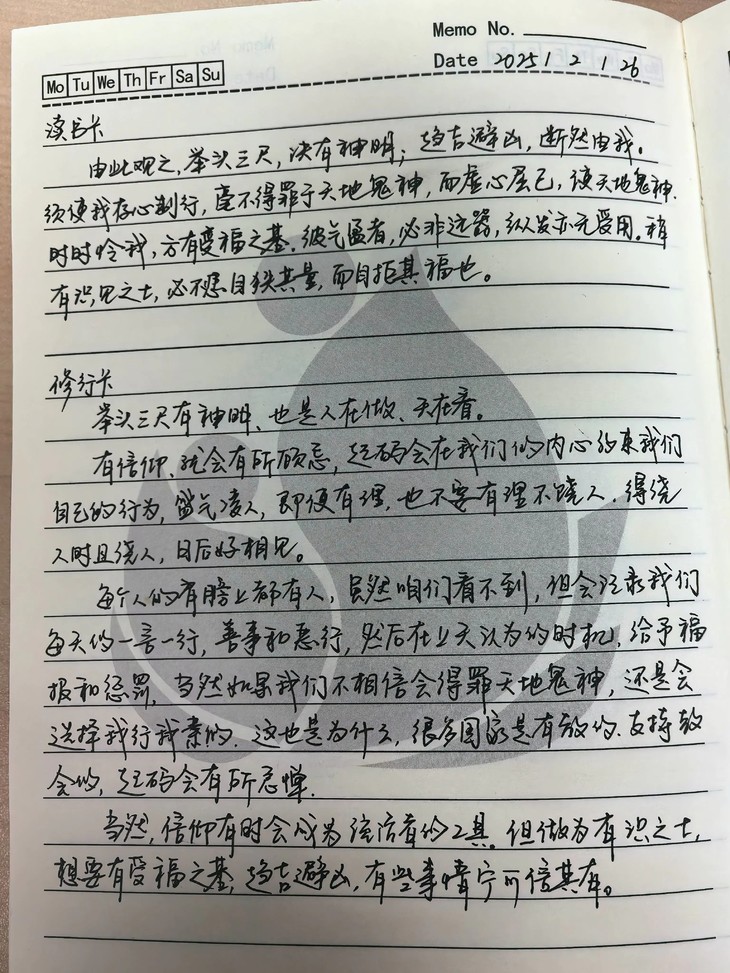 Memo No.
Date 2025 / 2 / 26
Mo Tu We Th Fr Sa Su
读书卡
由此观之,举头三尺,决有神明;趋吉避凶,断然由我。
须使我存心制行,毫不得罪于天地鬼神,而虚心屈己,使天地鬼神,
时时怜我,方有受福之基。彼气盈者,必非远器,纵发亦无受用。稍
有识见之士,必不忍自狭其量,而自拒其福也。
修行卡
举头三尺有神明、也是人在做、天在看。
有信仰,就会有所顾忌,起码会在我们的内心约束我们
自己的行为,盛气凌人,即便有理,也不要有理不饶人,得饶
人时且饶人,日后好相见。
每个人的肩膀上都有人,虽然咱们看不到,但会记录我们
每天的一言一行,善事和恶行,然后在上天认为的时机,给予福
报和惩罚,当然如果我们不相信会得罪天地鬼神,还是会
选择我行我素的、这也是为什么,很多国家是有教的、支持教
会的,起码会有所忌惮.
当然,信仰有时会成为统治者的工具。但做为有识之士,
想要有受福之基,趋吉避凶,有些事情宁可信其有。